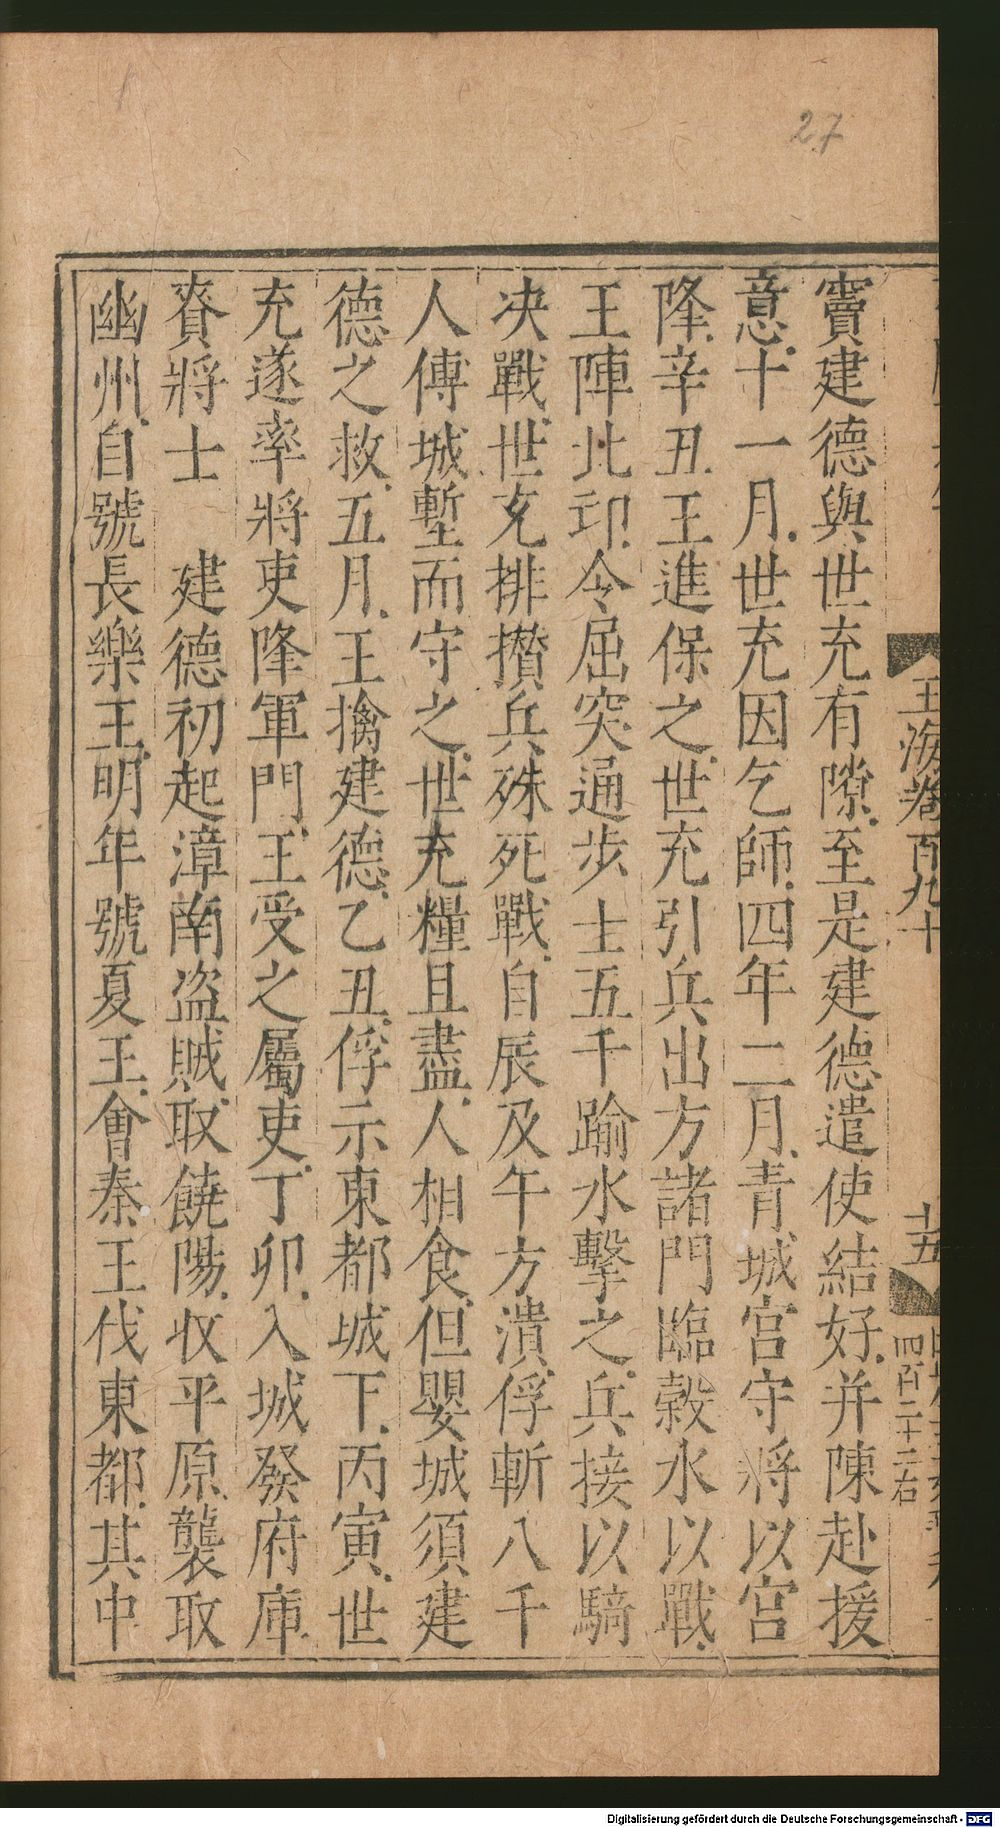 27
竇建德與世充有隙至是建德遣使結好并陳赴援
意十一月世充因乞師四年二月青城宮守將以宮
降辛丑王進保之世充引兵出方諸門臨穀水以戰
王陣北邙令屈突通步士五千踰水擊之兵接以騎
决戰世充排攢兵殊死戰自辰及午方潰俘斬八千
人傅城塹而守之世充糧且盡人相食但嬰城須建
德之救五月王擒建德乙丑俘示東都城下丙寅世
充遂率將吏降軍門王受之屬吏丁卯入城發府庫
賚將士　建德初起漳南盜賊取饒陽收平原襲取
幽州自號長樂王明年號夏王會秦王伐東都其中
玉海卷百九十
十五
四百二十二右
Digitalisierung gefördert durch die Deutsche Forschungsgemeinschaft - DFG